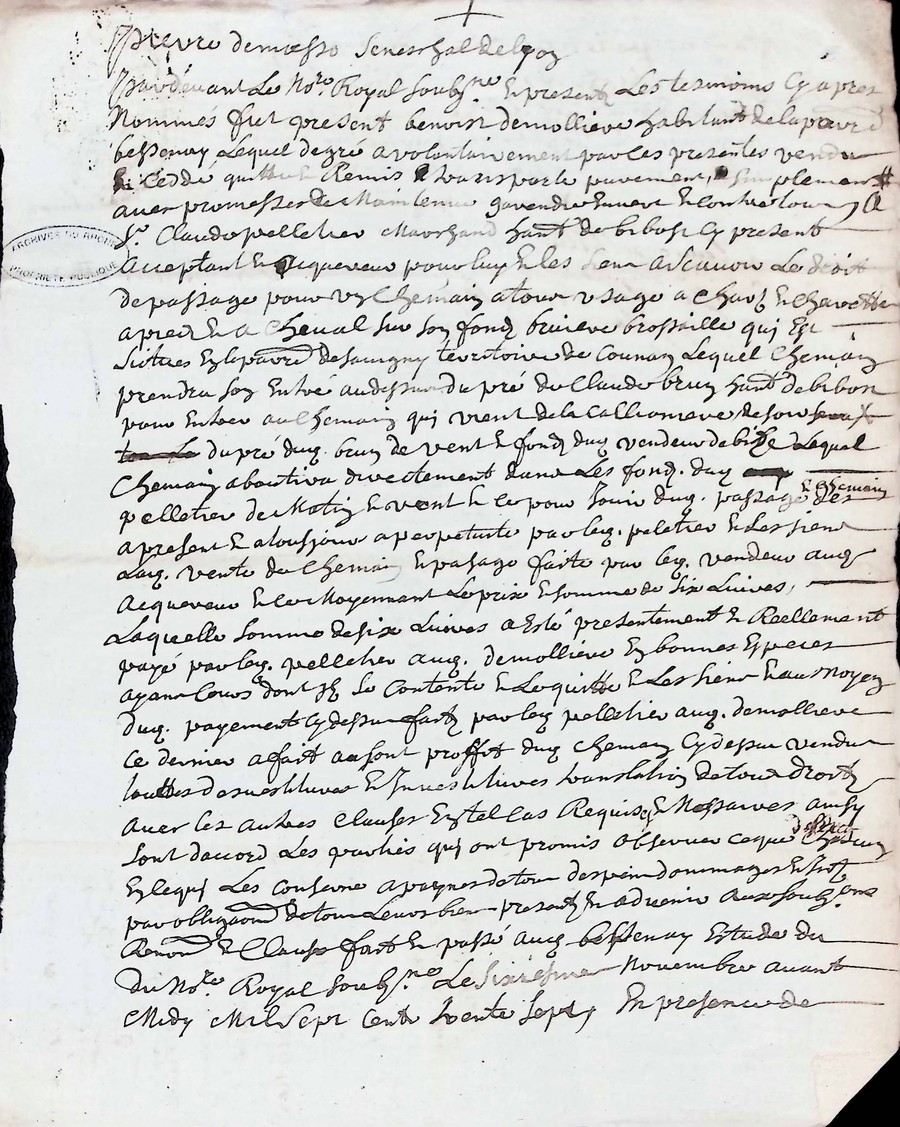 Pierre de masso seneschal de lyon
Pardevant Le Nore. Royal soubz.ne Et presentz Les tesmoins Cy apres
Nommés fut present benoist demolliere habitant de la parre de
bessenay Lequel de gré a volontairement par les presentes vendu
Cedde quitte Remis & transporte purement, simplement
avec promesses de Maintenue garendie Envers Et Contre tous a
Sr. Claude pelletier Marchand hant. de bibost Cy present
Acceptant Et Acquereur pour luy Et les siens Le droit
de passage pour un Chemain a tous usage a Char Et Charette
a pied Et a Cheval sur son fond bruiere brossaille qui Est
scitues En la parre. de savigny territoire de Counay Lequel Chemain
prendra son Entré au dessus du pré de Claude brun hant. de bibost
pour Entrer au Chemain qui vient de la Callioniere de soir
du pré duq. brun de vent Et fond duq. vendeur de bize Lequel
Chemain aboutira directement dans Les fond. duq
pelletier de Matin Et vent Et ce pour Jouir duq. passage Et Chemain des
a present Et a tousjour a perpetuité par leq. peletier Et Les siens
Laq. vente de Chemain Et pasage faite par leq. vendeur auq
Acquereur Et ce Moyennant Le prix Et somme de six Livres,
Laquelle somme de six Livres a Esté presentement Et Reellement
payé par leq. pelletier auq. demolliere En bonnes Especes
ayans Cours dont Il se Contente Et Le quitte Et Les siens Et au Moyen
duq. payement Cy dessus fait par leq pelletier auq. demolliere
Ce dernier a fait au profit duq Chemain Cy dessus vendu
touttes desvestitures Et Investitures translation de tous droitz
avec les autres Clauses En tel Cas Requises Et Nessaires ainsy
sont d'accord Les parties qui ont promis observer ce que dessus Chacun
En Ce qui Les Conserne a paynes de tous despens dommages Et Intz
par obligaon. de tous Leurs biens presentz Et advenir aux soubz.ons
Renon. Et Clause fait Et passé auq bessenay Estude du
du Nore. Royal soubz.ne Le sixiesme Novembre avant
Midy Mil sept Centz trente sept, En presence de
ARCHIVES DU RHONE
PROPRIÉTÉ PUBLIQUE